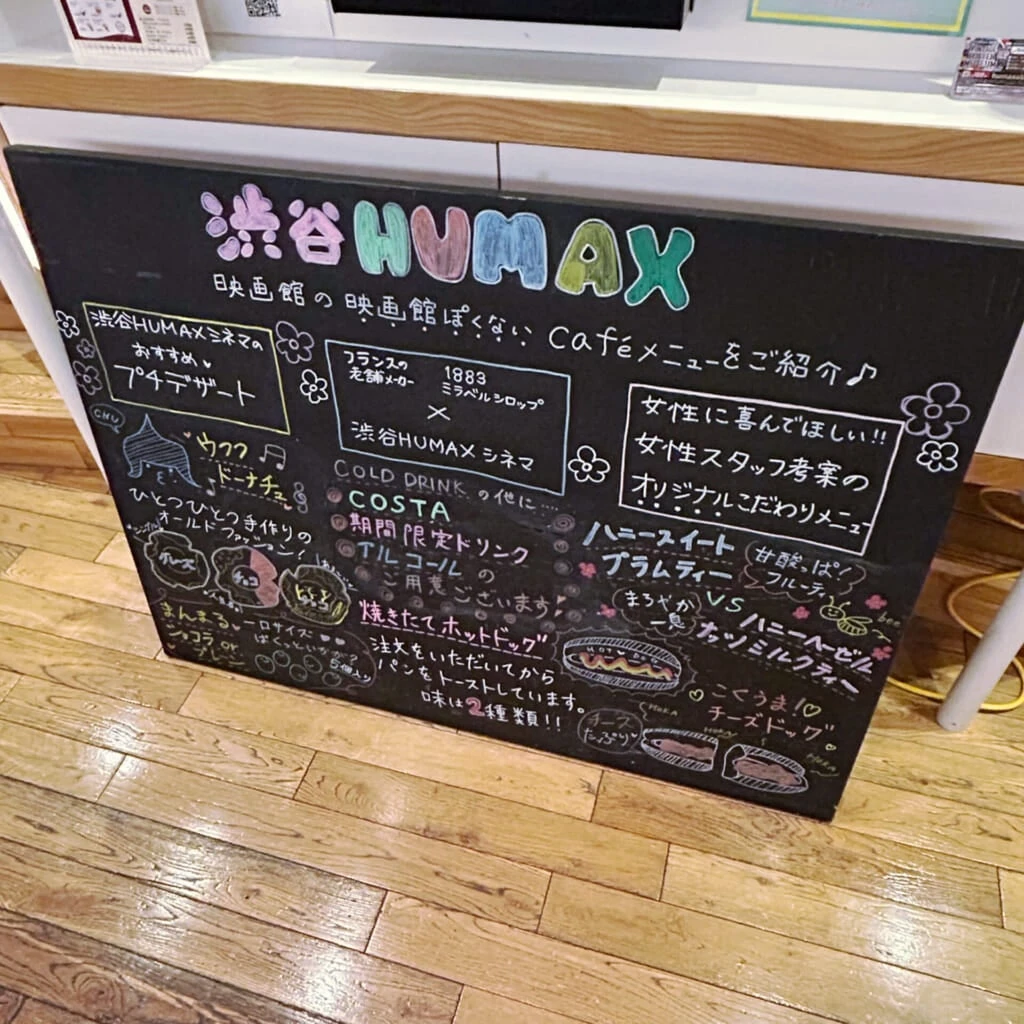 渋谷HUMAX
映画館の映画館ぽくないcaféメニューをご紹介♪
渋谷HUMAXシネマの
おすすめ
プチデザート
CHU
ウフフ
ドーナチュ
ひとつひとつ手作りの
オールドファッション!
シンプル
グレーズ
チョコ
まんまる
ショコラ or
プレーン
一口サイズ
ぱくっといちゃう?
5個入り
フランスの
老舗メーカー
1883
ミラベルシロップ
×
渋谷HUMAXシネマ
COLD DRINKの他に....
COSTA
期間限定ドリンク
アルコールの
ご用意ございます
焼きたてホットドッグ
注文をいただいてから
パンをトーストしています。
味は2種類!!
HOT DOG
女性に喜んでほしい!!
女性スタッフ考案の
オリジナルこだわりメニュー
ハニースイート
プラムティー
甘酸っぱ!
フルーティ
VS
まろやか
一息
ハニーヘーゼル
ナッツミルクティー
bee
こくうま!
チーズドッグ
チーズ
たっぷり
HOKA
HOKA
HOKA